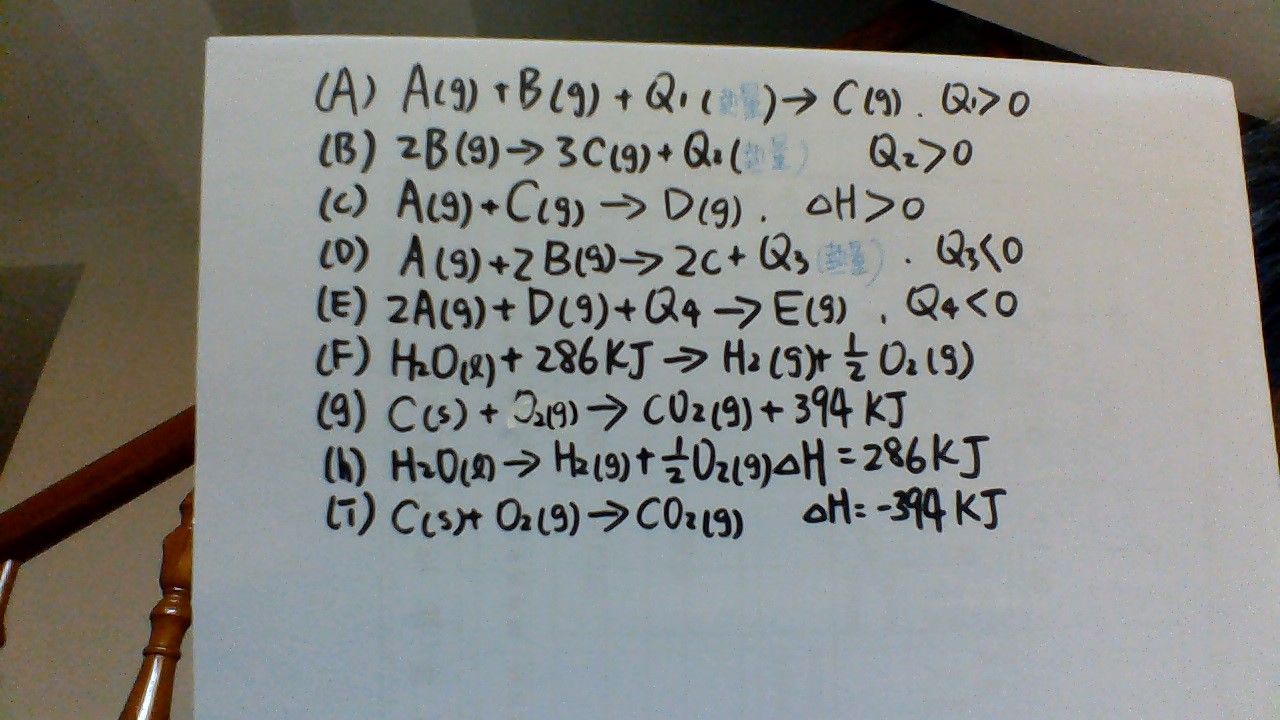 (A) A(g) + B(g) + Q₁ (熱量) → C(g). Q₁>0
(B) 2B(g) → 3C(g) + Q₂ (熱量) Q₂>0
(C) A(g) + C(g) → D(g). △H>0
(D) A(g) + 2B(g) → 2C + Q₃ (熱量). Q₃<0
(E) 2A(g) + D(g) + Q₄ → E(g), Q₄<0
(F) H₂O(l) + 286KJ → H₂(g) + ½ O₂(g)
(g) C(s) + O₂(g) → CO₂(g) + 394 KJ
(h) H₂O(l) → H₂(g) + ½O₂(g) △H = 286KJ
(i) C(s) + O₂(g) → CO₂(g) △H = -394 KJ